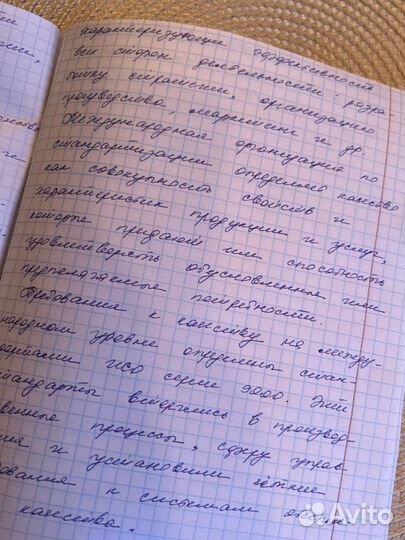 характеризующая эффективность
всех сторон деятельности: разра
ботку стратегии, организацию
производства, маркетинг и др.
Международная организация по
стандартизации определила качество
как совокупность свойств и
характеристик продукции и услуг,
которые придают им способность
удовлетворять обусловленные или
предполагаемые потребности.
Требования к качеству на между-
народном уровне определены стан-
дартами ИСО серии 9000. Эти
стандарты вторглись в производ-
венные процессы, сферу управ-
ния и установили чёткие
ования к системам
качества.
Avito